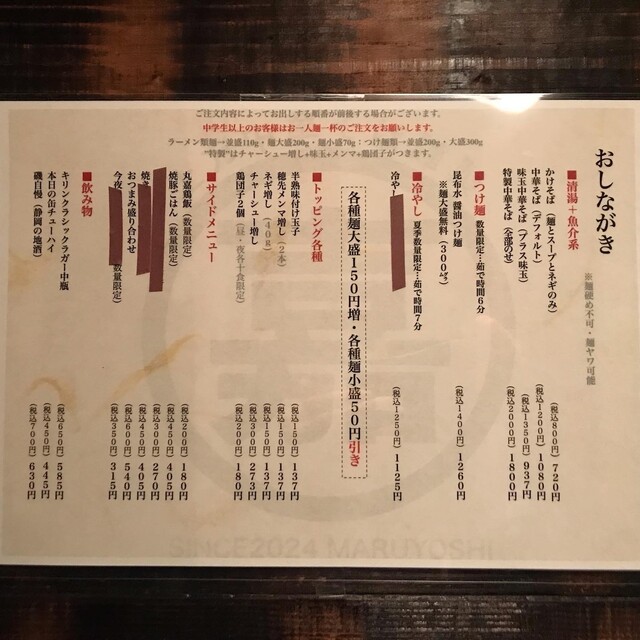 ご注文内容によってお出しする順番が前後する場合がございます。
中学生以上のお客様はお一人麺一杯のご注文をお願いします。
ラーメン類麺→並盛110g・麺大盛200g・麺小盛70g：つけ麺類→並盛200g・大盛300g
"特製"はチャーシュー増し+味玉+メンマ+鶏団子がつきます。
おしながき
※麺硬め不可・麺ヤワ可能
■清湯＋魚介系
かけそば（麺とスープとネギのみ）（税込800円）720円
中華そば（デフォルト）（税込1200円）1080円
味玉中華そば（プラス味玉）（税込1350円）937円
特製中華そば（全部のせ）（税込2000円）1800円
■つけ麺 数量限定…茹で時間6分
昆布水 醤油つけ麺（税込1400円）1260円
※麺大盛無料（300㌘）
■冷やし 夏季数量限定…茹で時間7分
冷やし（税込1250円）1125円
各種麺大盛150円増・各種麺小盛50円引き
■トッピング各種
半熟味付け玉子（税込150円）137円
穂先メンマ増し（2本）（税込150円）137円
ネギ増し（40g）（税込150円）137円
チャーシュー増し（税込300円）273円
鶏団子2個（昼・夜各十食限定）（税込200円）180円
■サイドメニュー
丸嘉鶏飯（数量限定）（税込200円）180円
焼豚ごはん（数量限定）（税込450円）405円
（税込300円）270円
焼き（税込450円）405円
おつまみ盛り合わせ（税込600円）540円
今夜 数量限定）（税込350円）315円
■飲み物
キリンクラシックラガー中瓶（税込650円）585円
本日の缶チューハイ（税込450円）445円
磯自慢（静岡の地酒）（税込700円）630円
SINCE2024 MARUYOSHI